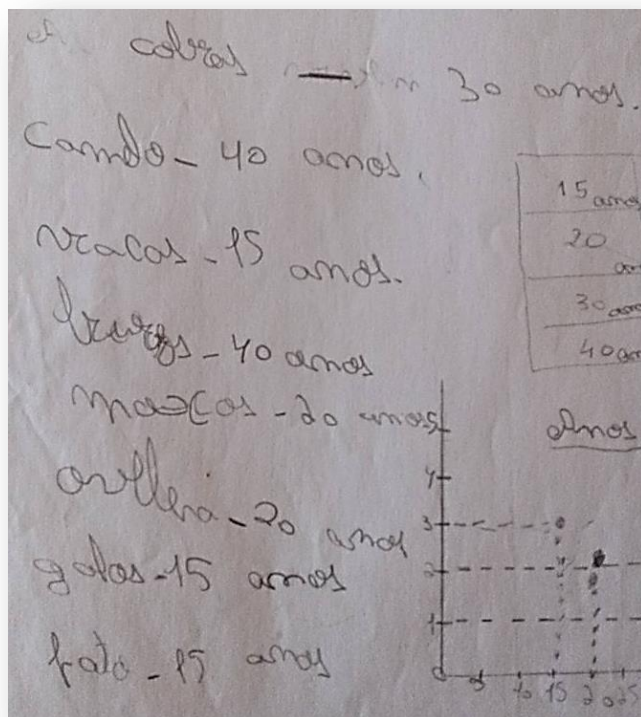 cobras — 30 anos.
Camdo - 40 anos.
vacas - 15 anos.
burros - 40 anos
moscos - 20 anos
ovllena - 20 anos
galos - 15 anos
pato - 15 anos
15 anos
20
30
40
Anos
5
4
3
2
1
0 5 10 15 20 25